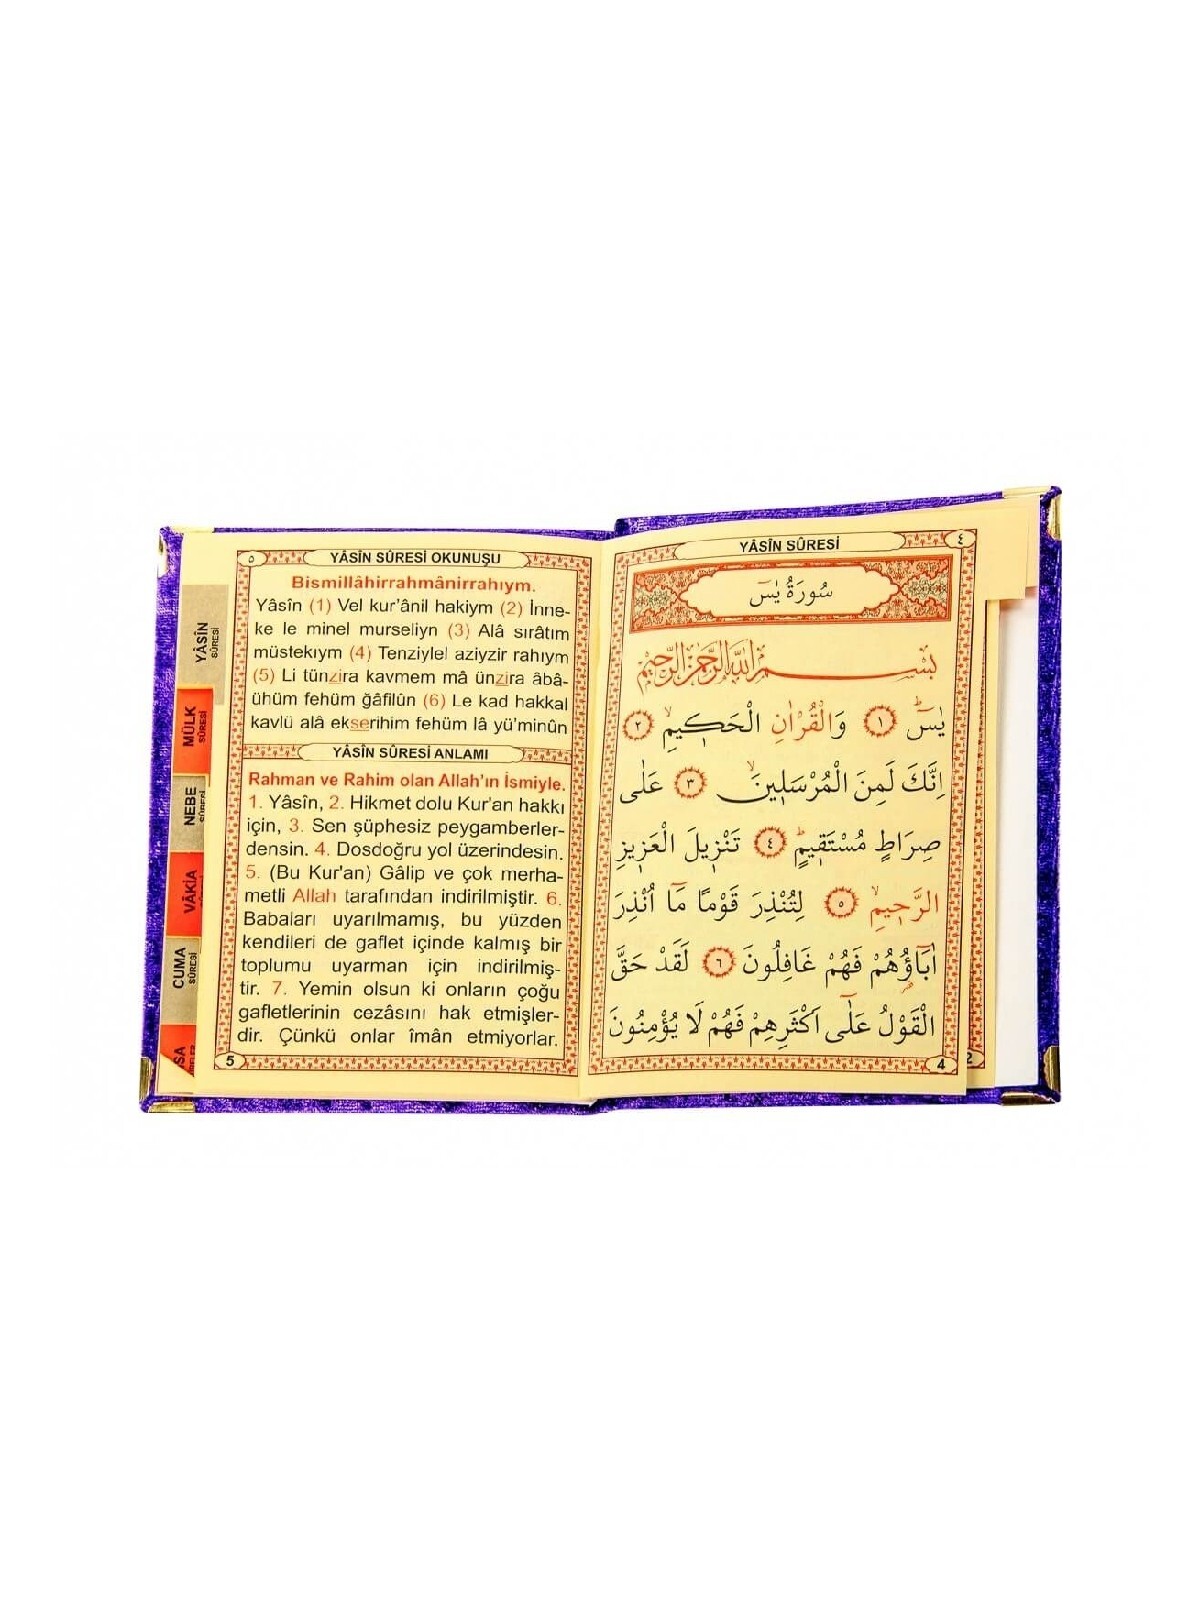 YÂSİN SÛRESİ
MÜLK SÛRESİ
NEBE SÛRESİ
VÂKIA
CUMA SÛRESİ
٥
YÂSİN SÛRESİ OKUNUŞU
Bismillâhirrahmânirrahıym.
Yâsîn (1) Vel kur'ânil hakiym (2) İnne-
ke le minel murseliyn (3) Alâ sırâtım
müstekıym (4) Tenziylel aziyzir rahıym
(5) Li tünzira kavmem mâ ünzira âbâ-
ühüm fehüm ğâfilûn (6) Le kad hakkal
kavlü alâ ekserihim fehüm lâ yü'minûn
YÂSÎN SÛRESİ ANLAMI
Rahman ve Rahim olan Allah'ın İsmiyle.
1. Yâsîn, 2. Hikmet dolu Kur'an hakkı
için, 3. Sen şüphesiz peygamberler-
densin. 4. Dosdoğru yol üzerindesin.
5. (Bu Kur'an) Gâlip ve çok merha-
metli Allah tarafından indirilmiştir. 6.
Babaları uyarılmamış, bu yüzden
kendileri de gaflet içinde kalmış bir
toplumu uyarman için indirilmiş-
tir. 7. Yemin olsun ki onların çoğu
gafletlerinin cezâsını hak etmişler-
dir. Çünkü onlar îmân etmiyorlar.
5
YÂSÎN SÛRESİ
٤
سُورَةُ يٰسٓ
بِسْمِ اللّٰهِ الرَّحْمٰنِ الرَّحِيمِ
يٰسٓ ١ وَالْقُرْاٰنِ الْحَكِيمِ ٢
اِنَّكَ لَمِنَ الْمُرْسَلِينَ ٣ عَلٰى
صِرَاطٍ مُسْتَقِيمٍ ٤ تَنْزِيلَ الْعَزِيزِ
الرَّحِيمِ ٥ لِتُنْذِرَ قَوْمًا مَٓا اُنْذِرَ
اٰبَٓاؤُهُمْ فَهُمْ غَافِلُونَ ٦ لَقَدْ حَقَّ
الْقَوْلُ عَلٰٓى اَكْثَرِهِمْ فَهُمْ لَا يُؤْمِنُونَ
4
2